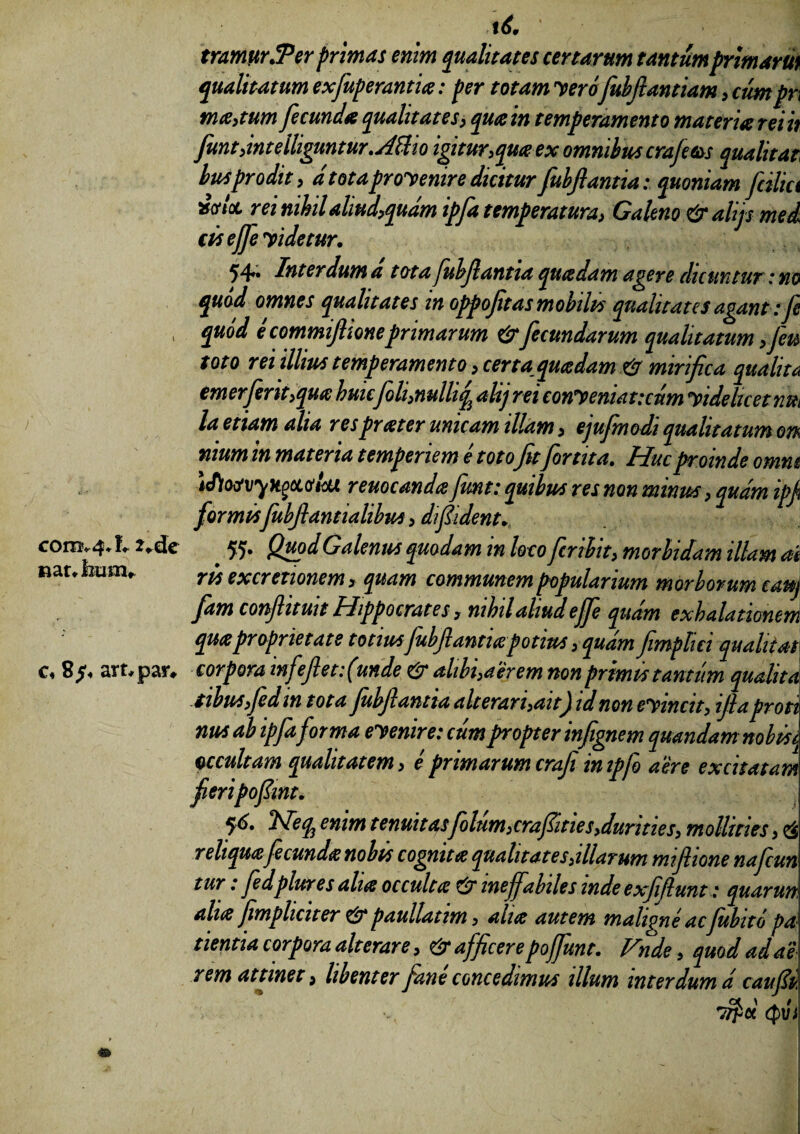 16.
tramur. Per primas enim qualitates certarum tantùm primarũ
qualitatum exsuperantiæ: per totam verò substantiam, cùm pri
mæ, tum secundæ qualitates, quæ in temperamento materiæ rei in
sunt, intelliguntur. Actio igitur, quæ ex omnibus craseωs qualitati
bus prodit, à tota provenire dicitur substantia: quoniam scilicet
ȣσία rei nihil aliud, quàm ipsa temperatura, Galeno & alijs med
cis esse videtur.
54. Interdum à tota substantia quædam agere dicuntur: no
quòd omnes qualitates in oppositas mobilis qualitates agant: se
quòd è commistione primarum & secundarum qualitatum, seu
toto rei illius temperamento, certa quædam & mirifica qualita
emerserit, quæ huic soli, nulliq; alij rei conveniat: cùm videlicet nul
la etiam alia res præter unicam illam, ejusmodi qualitatum om
nium in materia temperiem è toto sit sortita. Huc proinde omne
ἰδιοσυγκρασίαι reuocandæ sunt: quibus res non minus, quàm ips
formis substantialibus, dissident.
com. 4. l. 2. de
nat. hum.
55. Quod Galenus quodam in loco scribit, morbidam illam aë
ris excretionem, quam communem popularium morborum cauſ
sam constituit Hippocrates, nihil aliud esse quàm exhalationem
quæ proprietate totius substantiæ potius, quàm simplici qualitat
c. 85. art. par.
corpora infestet: (unde & alibi, aërem non primis tantùm qualita
tibus, sed in tota substantia alterari, ait) id non evincit, ista proti
nus ab ipsa forma evenire: cùm propter insignem quandam nobisq
occultam qualitatem, è primarum crasi in ipso aëre excitatam
fieri possint.
56. Neq; enim tenuitas solùm, crassities, durities, mollities, &
reliquæ secundæ nobis cognitæ qualitates, illarum mistione nascun
tur: sed plures aliæ occultæ & ineffabiles inde existunt: quarum
aliæ simpliciter & paullatim, aliæ autem malignè ac subitò pa
tientia corpora alterare, & afficere possunt. Unde, quod ad aë
rem attinet, libenter sanè concedimus illum interdum à caussis
παρὰ φύσι